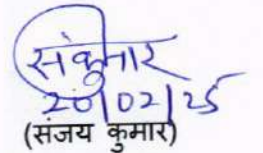 संकुमार
20/02/25
(संजय कुमार)